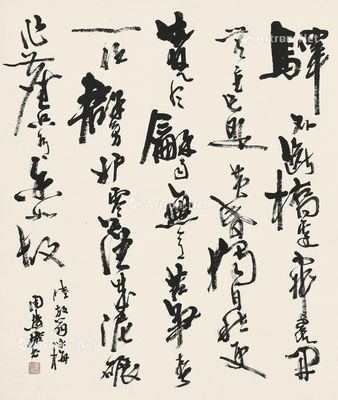 驛外斷橋邊寂寞開
無主已是黃昏獨自愁更
著風龢雨無意苦爭春
一任群芳妒零落成泥碾
作塵只有香如故
陸放翁詠梅
周慧珺書